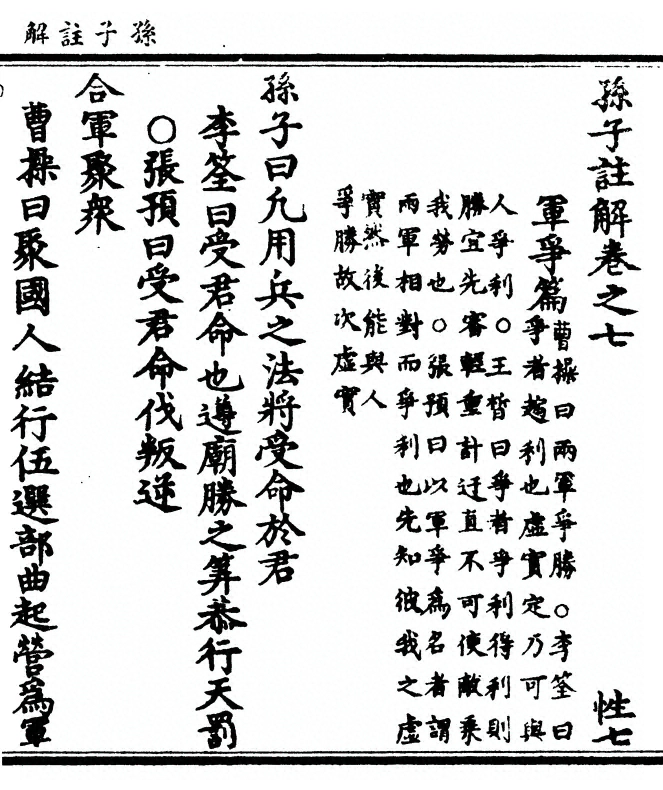 孫子註解
孫子註解卷之七 性七
軍爭篇
曹操曰兩軍爭勝○李筌曰
爭者趨利也虛實定乃可與
人爭利○王晳曰爭者爭利得利則
勝宜先審輕重計迂直不可使敵乘
我勞也○張預曰以軍爭爲名者謂
兩軍相對而爭利也先知彼我之虛
實然後能與人
爭勝故次虛實
孫子曰凡用兵之法將受命於君
李筌曰受君命也遵廟勝之筭恭行天罰
○張預曰受君命伐叛逆
合軍聚衆
曹操曰聚國人結行伍選部曲起營爲軍